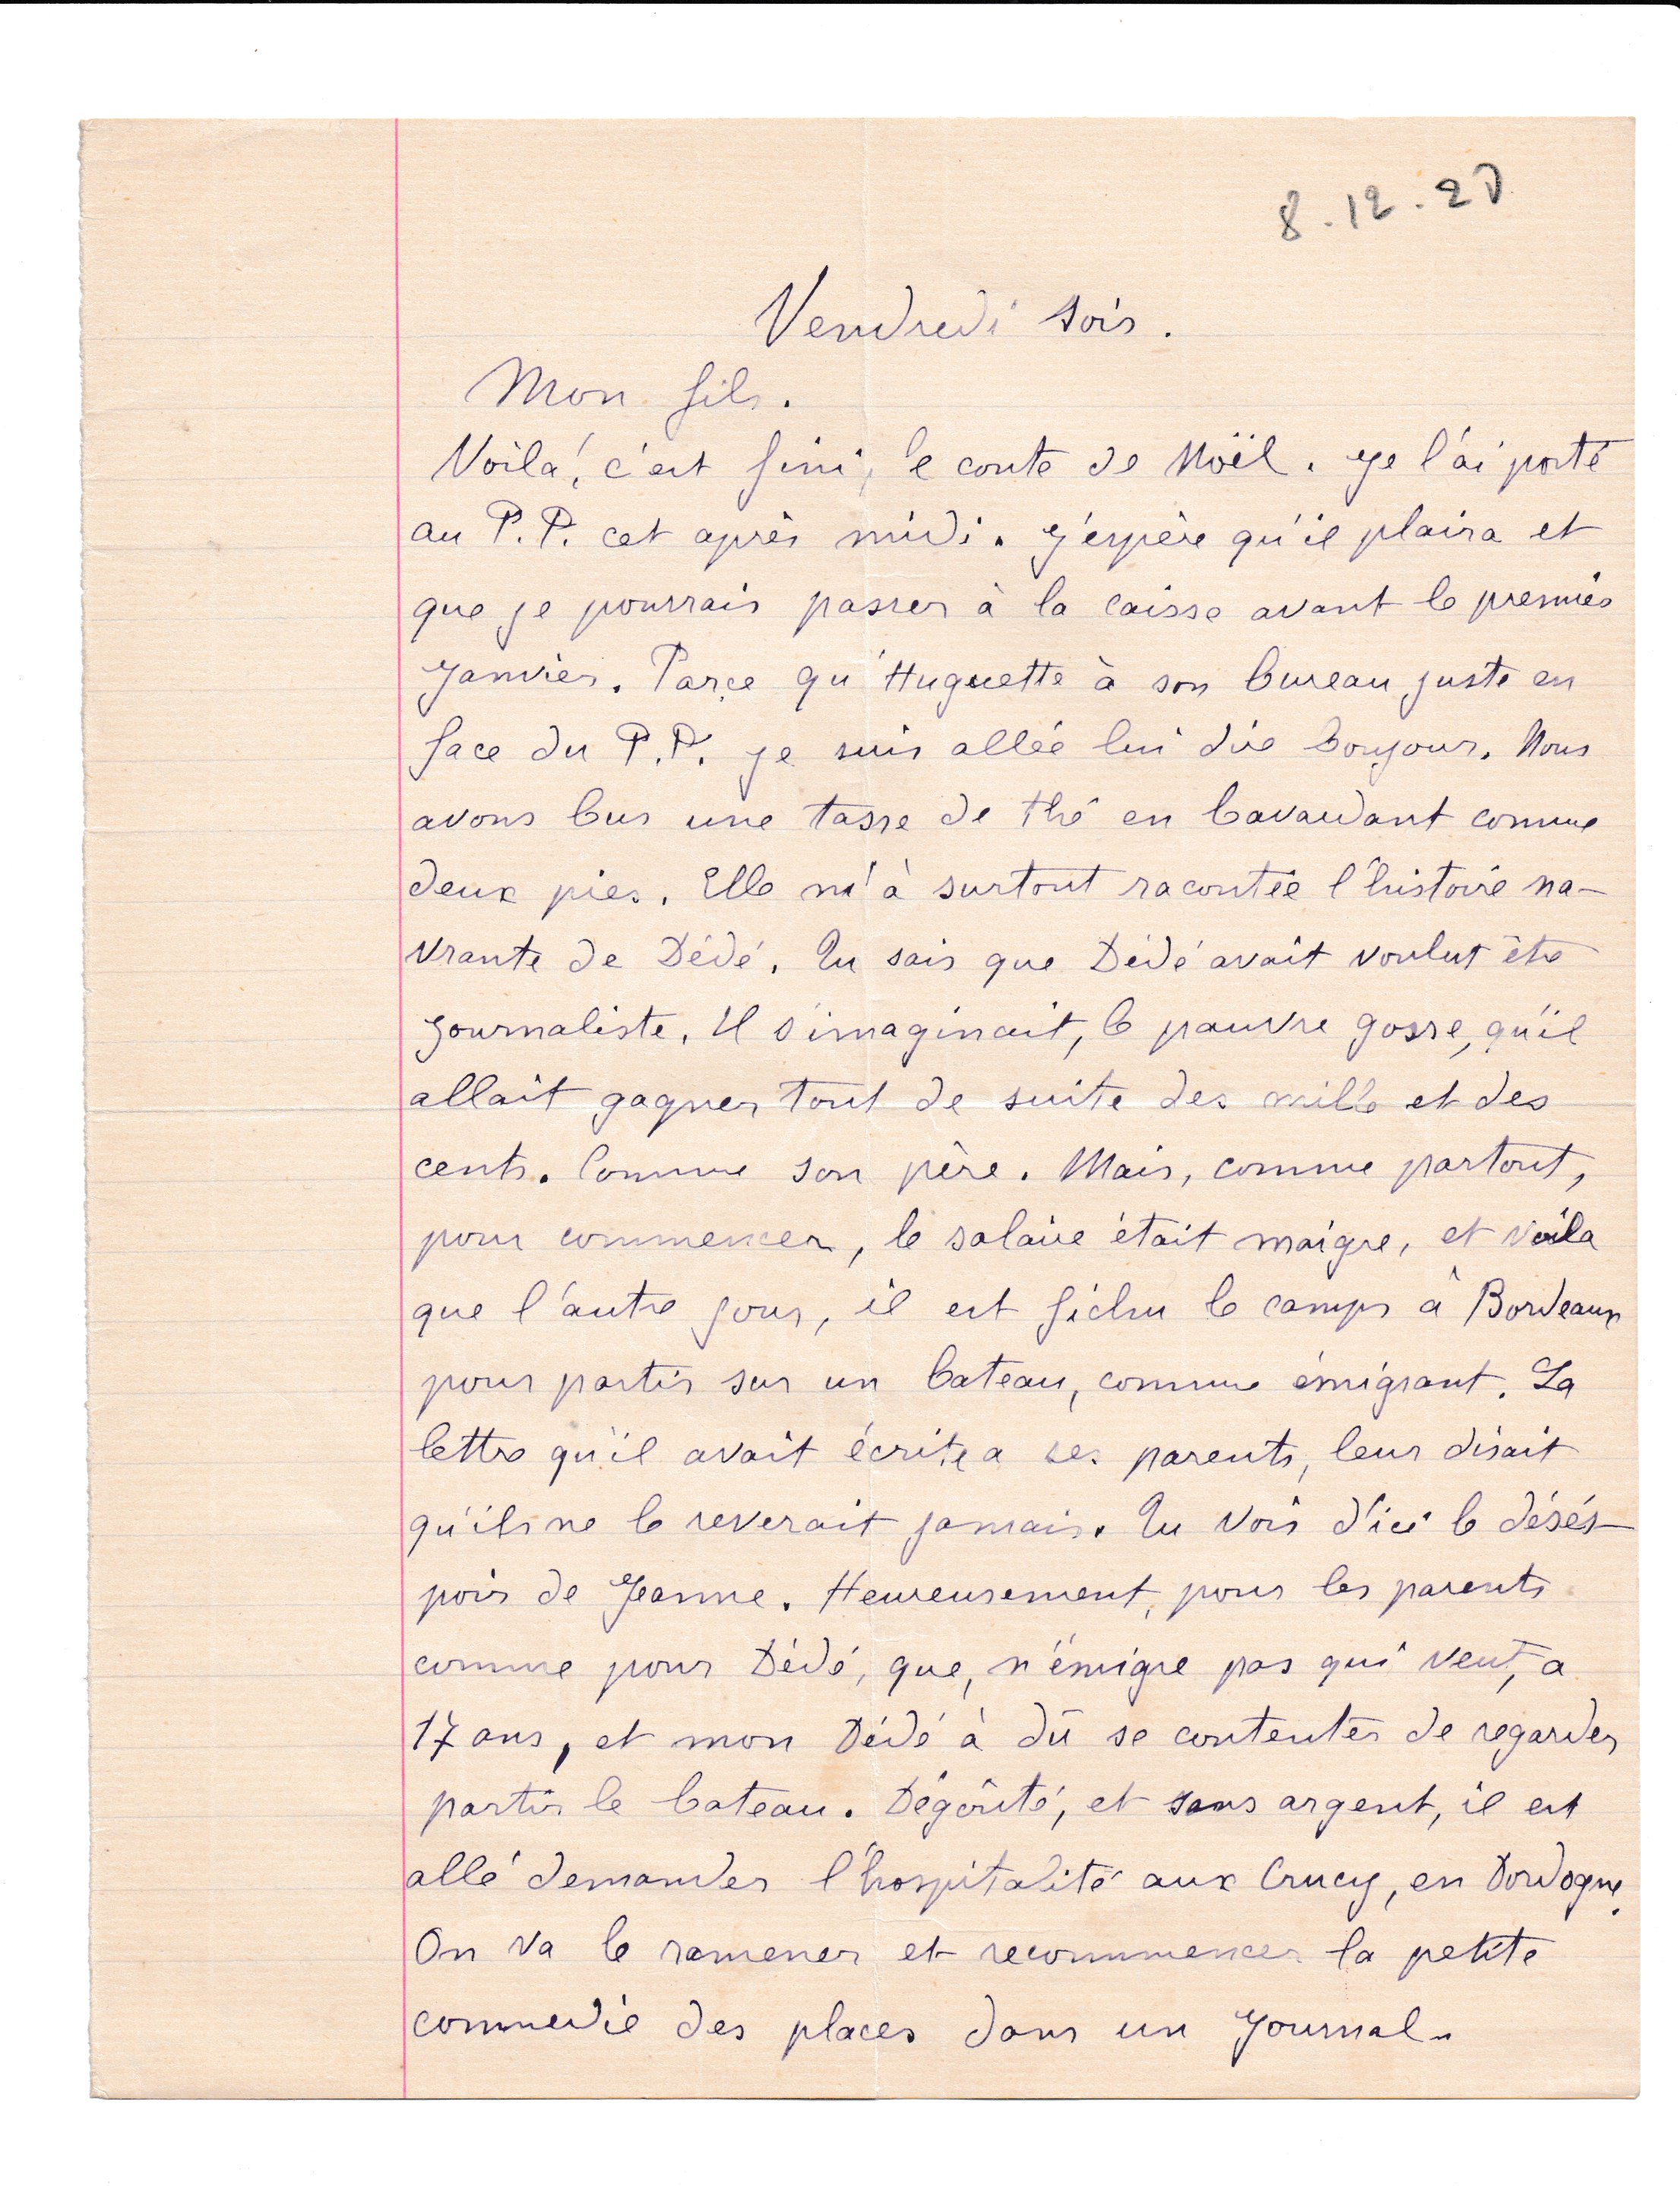 8.12.20
Vendredi soir.
Mon fils.
Voilà, c'est fini, le conte de Noël. Je l'ai porté
au P.P. cet après midi. J'espère qu'il plaira et
que je pourrais passer à la caisse avant le premier
Janvier. Parce qu'Huguette à son bureau juste en
face du P.P. je suis allée lui dire bonjour. Nous
avons bus une tasse de thé en bavardant comme
deux pies. Elle m'à surtout racontée l'histoire na-
vrante de Dédé. Tu sais que Dédé avait voulut être
journaliste. Il s'imaginait, le pauvre gosse, qu'il
allait gagner tout de suite des mille et des
cents. Comme son père. Mais, comme partout,
pour commencer, le salaire était maigre, et voila
que l'autre jour, il est fichu le camps à Bordeaux
pour partir sur un bateau, comme émigrant. La
lettre qu'il avait écrite a ses parents, leur disait
qu'ils ne le reverait jamais. Tu vois d'ici le désés-
poir de Jeanne. Heureusement, pour les parents
comme pour Dédé, que, n'émigre pas qui veut, a
17 ans, et mon Dédé à dû se contenter de regarder
partir le bateau. Dégoûté, et sans argent, il est
allé demander l'hospitalité aux Crucy, en Dordogne.
On va le ramener et recommencer la petite
commedie des places dans un Journal.